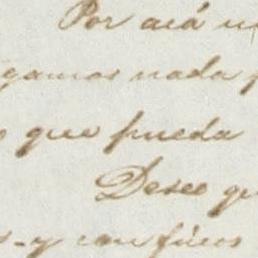 Por acá n
gamos nada p
que pueda
Deseo qu
s-y con